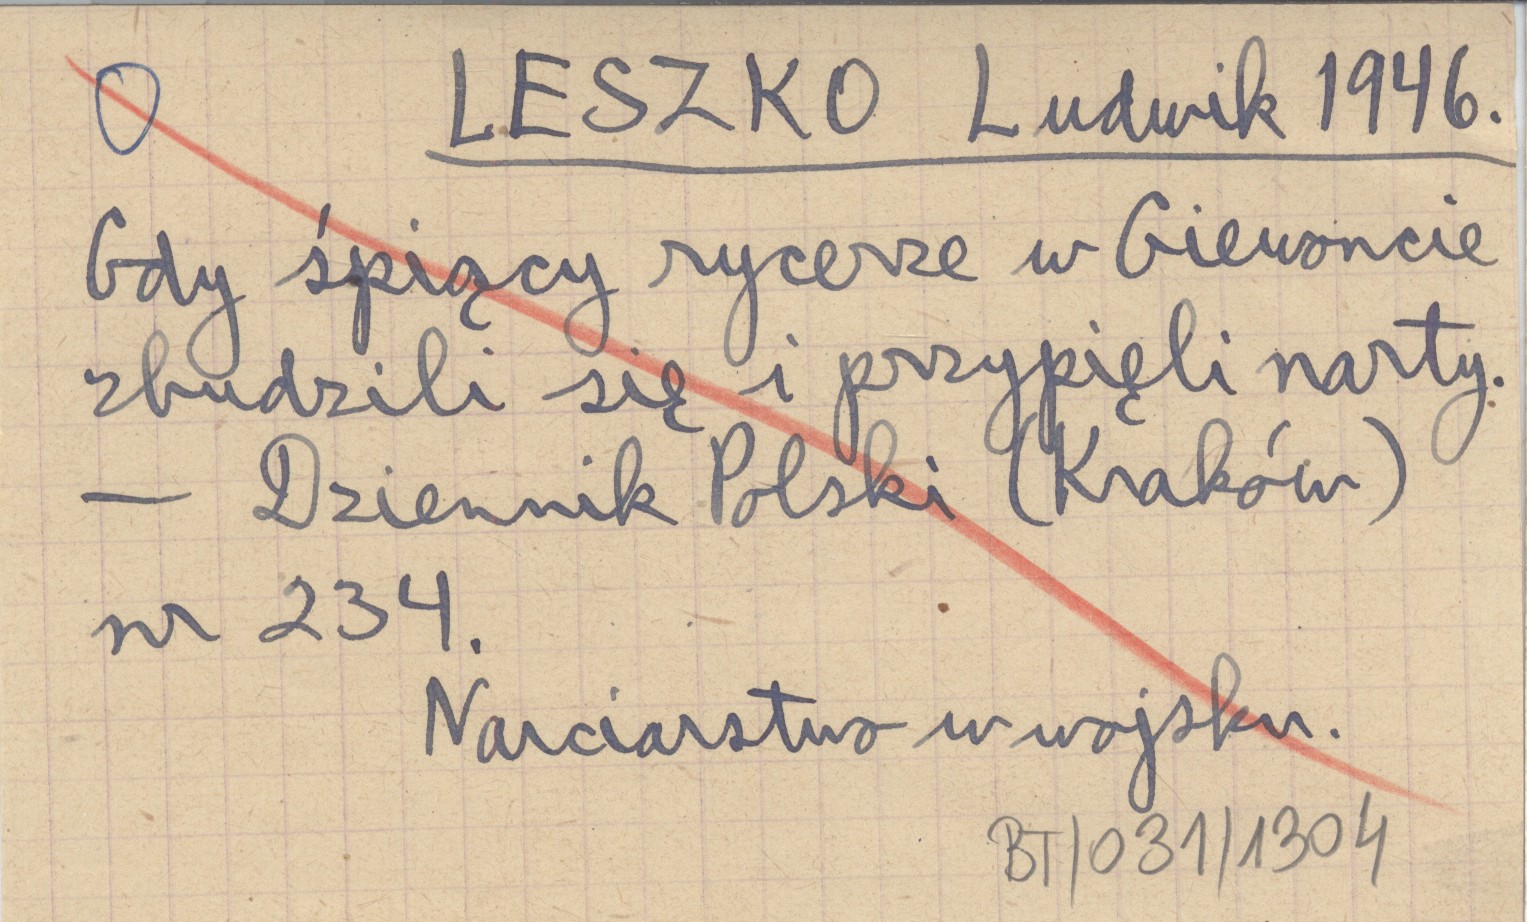 LESZKO Ludwik 1946.
Gdy śpiący rycerze w Giewoncie
zbudzili się i przypięli narty.
— Dziennik Polski (Kraków)
nr 234.
Narciarstwo w wojsku.
BT/031/1304